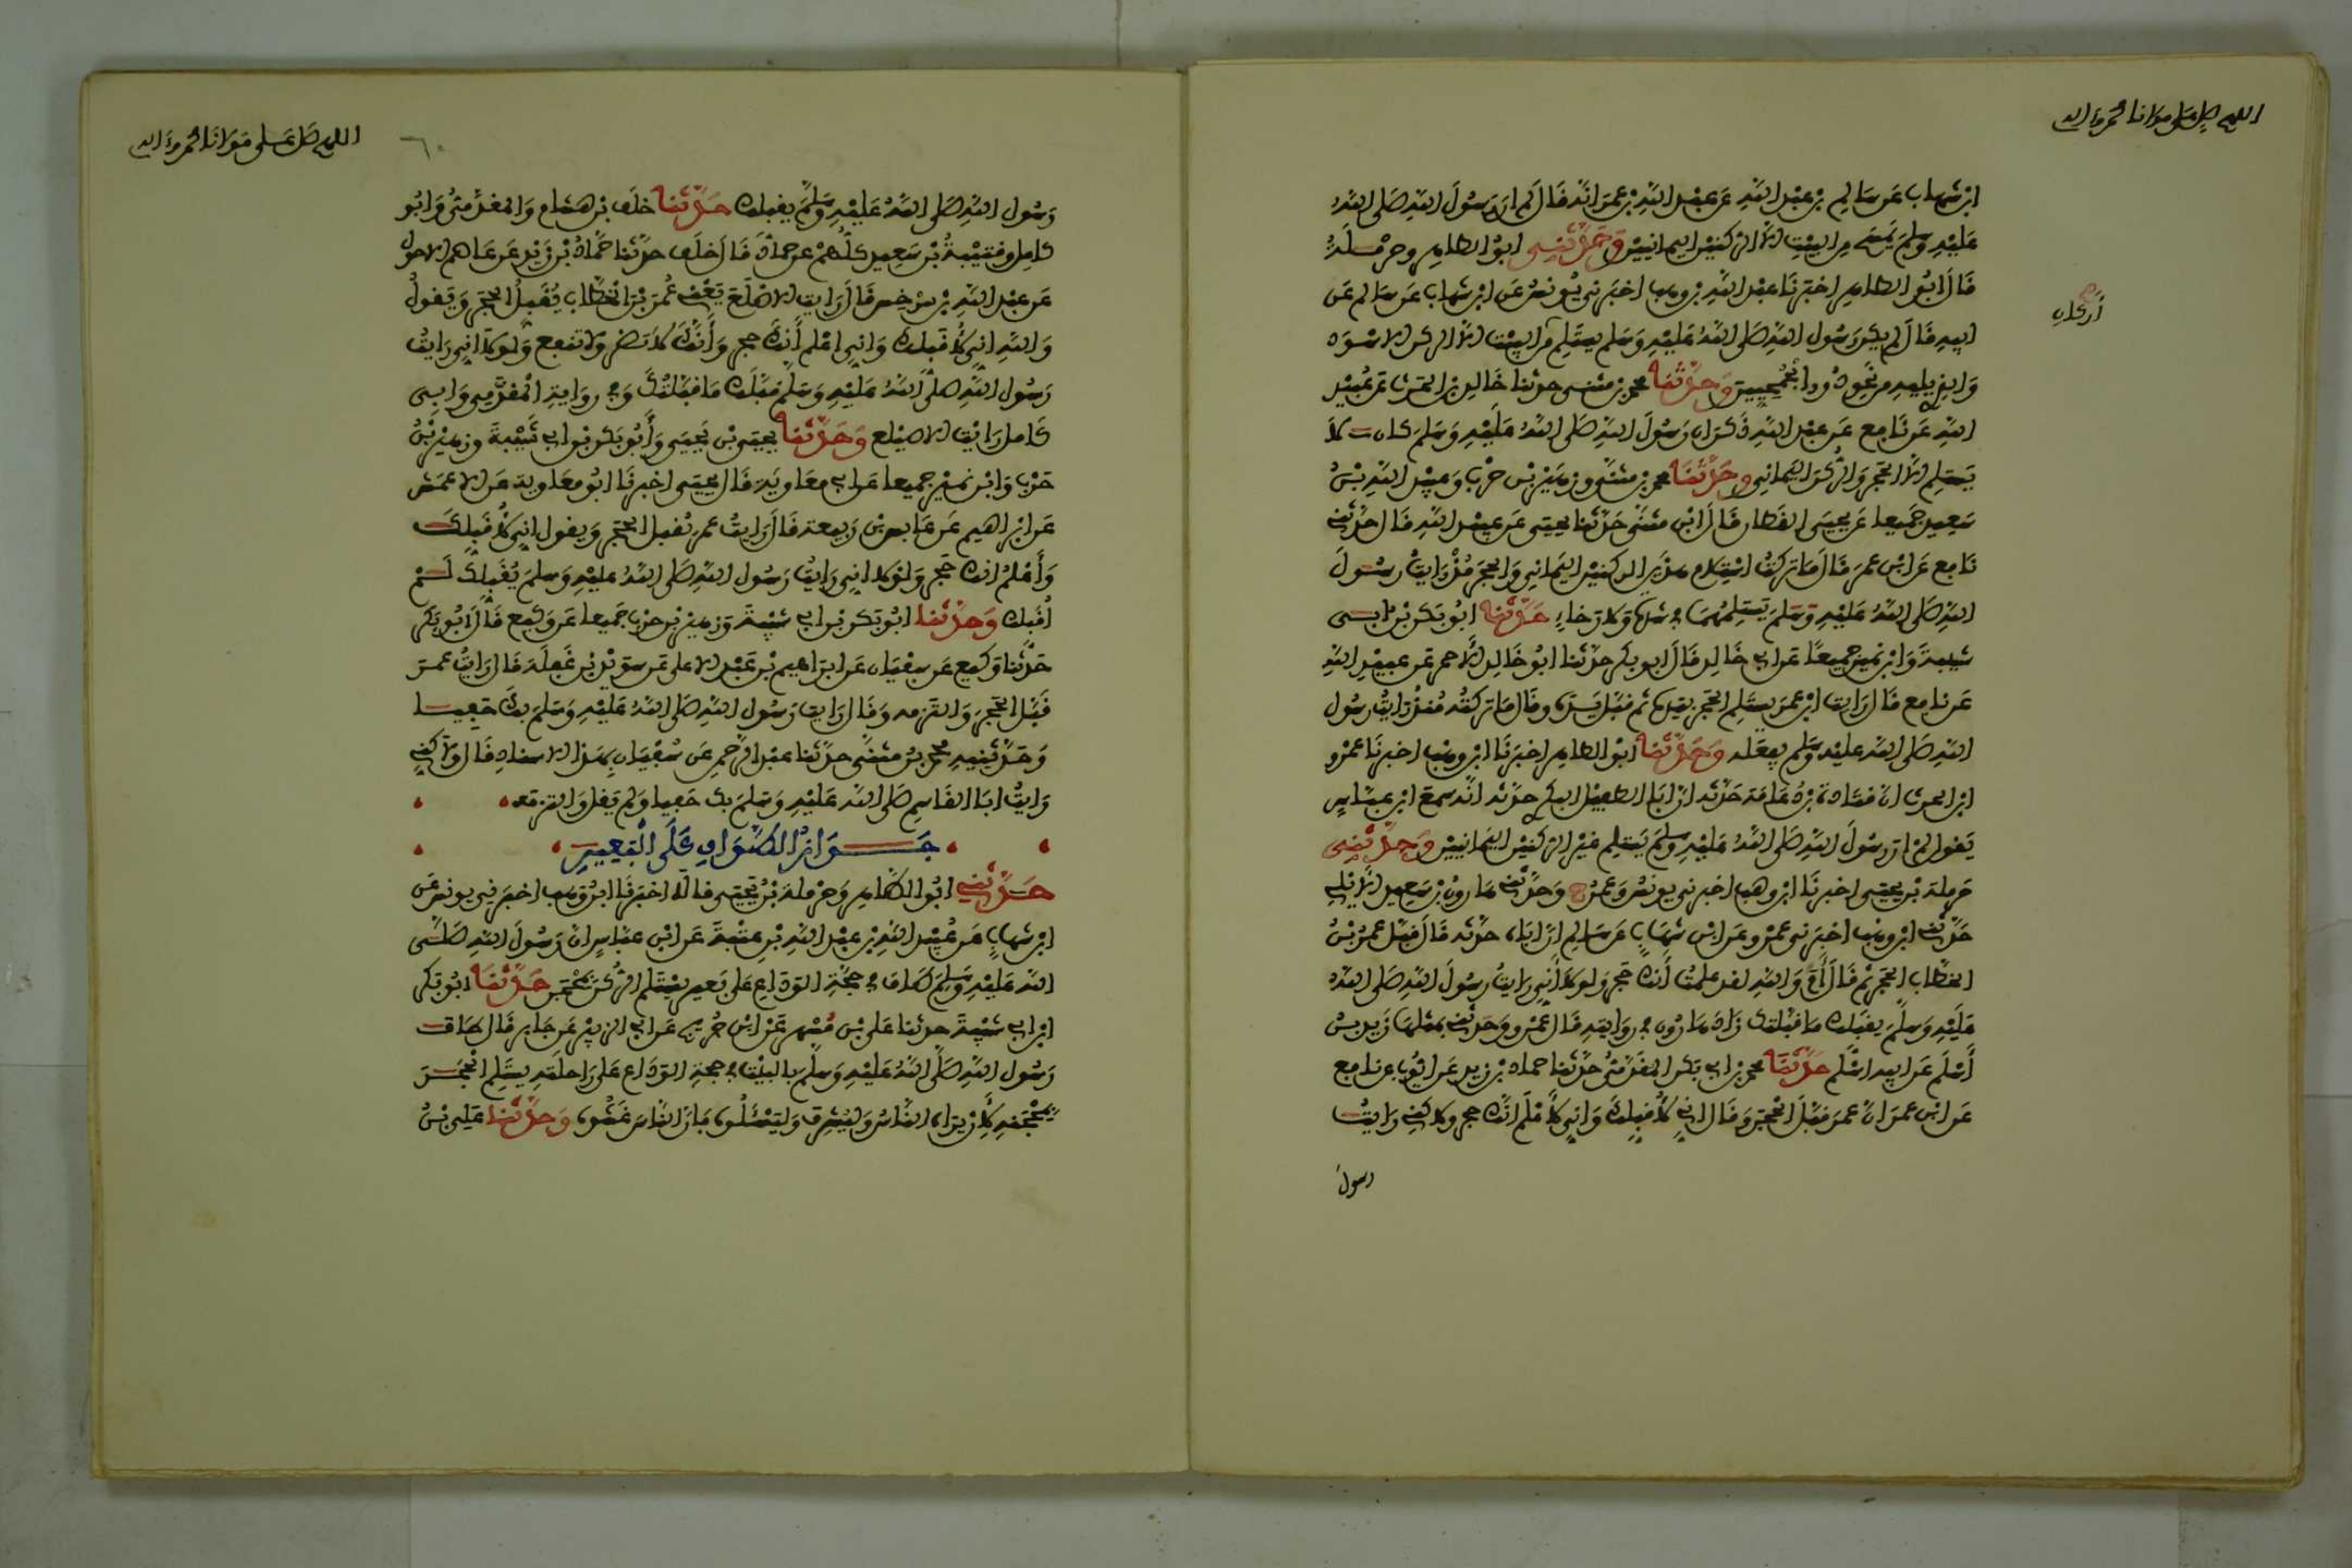 اللهم صل على مولانا محمد وءاله
ابن شهاب عن سالم بن عبد الله عن عبد الله بن عمر انه قال لم ار رسول الله صلى الله
عليه وسلم يمسح من البيت الا الركنين اليمانيين وحدثني ابو الطاهر وحرملة
قال ابو الطاهر اخبرنا عبد الله بن وهب اخبرني يونس عن ابن شهاب عن سالم عن
اركان
ابيه قال لم يكن رسول الله صلى الله عليه وسلم يستلم من البيت الا الركن الاسود
والذي يليه من نحو دور الجمحيين وحدثنا محمد بن مثنى حدثنا خالد بن الحرث عن عبيد
الله عن نافع عن عبد الله ذكر ان رسول الله صلى الله عليه وسلم كان لا
يستلم الا الحجر والركن اليماني وحدثنا محمد بن مثنى وزهير بن حرب وعبيد الله بن
سعيد جميعا عن يحيى القطان قال ابن مثنى حدثنا يحيى عن عبيد الله قال حدثني
نافع عن ابن عمر قال ما تركت استلام هذين الركنين اليماني والحجر مذ رايت رسول
الله صلى الله عليه وسلم يستلمهما في شدة ولا رخاء حدثنا ابو بكر بن ابي
شيبة وابن نمير جميعا عن ابي خالد قال ابو بكر حدثنا ابو خالد الاحمر عن عبيد الله
عن نافع قال رايت ابن عمر يستلم الحجر بيده ثم قبل يده وقال ما تركته منذ رايت رسول
الله صلى الله عليه وسلم يفعله وحدثنا ابو الطاهر اخبرنا ابن وهب اخبرنا عمرو
ابن الحرث ان قتادة بن دعامة حدثه ان ابا الطفيل البكري حدثه انه سمع ابن عباس
يقول لم ار رسول الله صلى الله عليه وسلم يستلم غير الركنين اليمانيين وحدثني
حرملة بن يحيى اخبرنا ابن وهب اخبرني يونس وعمرو ح وحدثني هارون بن سعيد الايلي
حدثني ابن وهب اخبرني عمرو عن ابن شهاب عن سالم ان اباه حدثه قال قبل عمر بن
الخطاب الحجر ثم قال أم والله لقد علمت أنك حجر ولولا أني رايت رسول الله صلى الله
عليه وسلم يقبلك ما قبلتك زاد هارون في روايته قال عمرو وحدثني بمثلها زيد بن
أسلم عن ابيه اسلم حدثنا محمد بن ابي بكر المقدمي حدثنا حماد بن زيد عن ايوب عن نافع
عن ابن عمر ان عمر قبل الحجر وقال اني لأقبلك واني لأعلم انك حجر ولاكني رايت
رسول
اللهم صل على مولانا محمد وءاله
٦٠
رسول الله صلى الله عليه وسلم يقبلك حدثنا خلف بن هشام والمقدمي وابو
كامل وقتيبة بن سعيد كلهم عن حماد قال خلف حدثنا حماد بن زيد عن عاصم الاحول
عن عبد الله بن سرجس قال رايت الاصلع يعني عمر بن الخطاب يقبل الحجر ويقول
والله اني لأقبلك واني اعلم أنك حجر وأنك لا تضر ولا تنفع ولولا اني رايت
رسول الله صلى الله عليه وسلم قبلك ما قبلتك وفي رواية المقدمي وابي
كامل رايت الاصيلع وحدثنا يحيى بن يحيى وأبو بكر بن ابي شيبة وزهير بن
حرب وابن نمير جميعا عن ابي معاوية قال يحيى اخبرنا ابو معاوية عن الاعمش
عن ابراهيم عن عابس بن ربيعة قال رايت عمر يقبل الحجر ويقول اني لأقبلك
وأعلم انك حجر ولولا اني رايت رسول الله صلى الله عليه وسلم يقبلك لم
اقبلك وحدثنا ابو بكر بن ابي شيبة وزهير بن حرب جميعا عن وكيع قال ابو بكر
حدثنا وكيع عن سفيان عن ابراهيم بن عبد الاعلى عن سويد بن غفلة قال رايت عمر
قبل الحجر والتزمه وقال رايت رسول الله صلى الله عليه وسلم بك حفيا
وحدثنيه محمد بن مثنى حدثنا عبد الرحمن عن سفيان بهذا الاسناد قال ولاكني
رايت ابا القاسم صلى الله عليه وسلم بك حفيا ولم يقل والتزمه
جواز الطواف على البعير
حدثني ابو الطاهر وحرملة بن يحيى قالا اخبرنا ابن وهب اخبرني يونس عن
ابن شهاب عن عبيد الله بن عبد الله بن عتبة عن ابن عباس ان رسول الله صلى
الله عليه وسلم طاف في حجة الوداع على بعير يستلم الركن بمحجن حدثنا ابو بكر
ابن ابي شيبة حدثنا علي بن مسهر عن ابن جريج عن ابي الزبير عن جابر قال طاف
رسول الله صلى الله عليه وسلم بالبيت في حجة الوداع على راحلته يستلم الحجر
بمحجنه لأن يراه الناس وليشرف وليسئلوه فان الناس غشوه وحدثنا علي بن